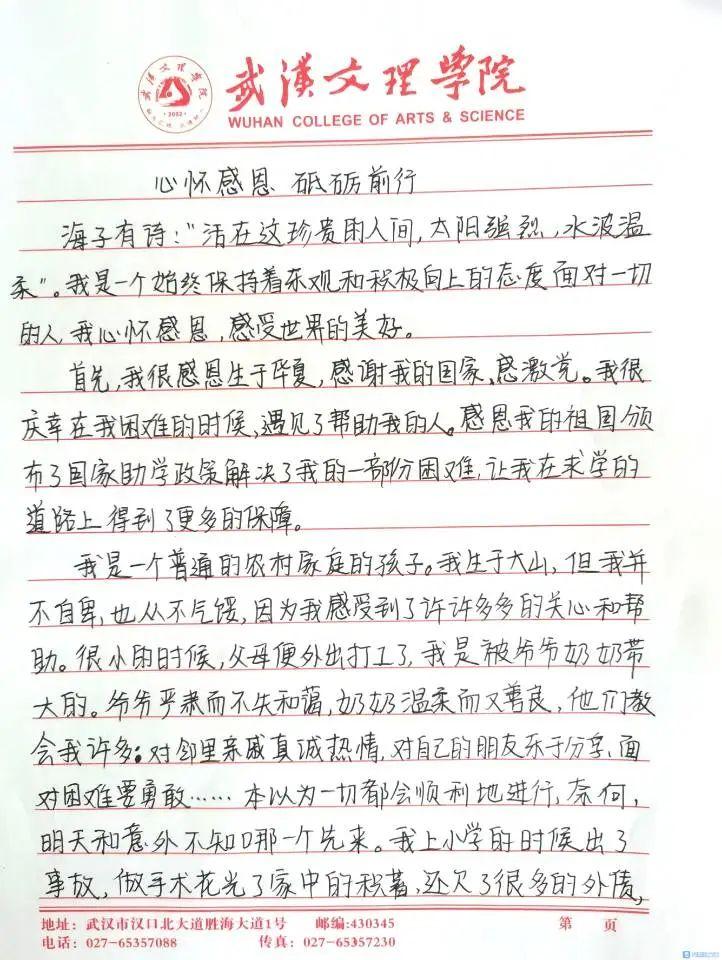 武汉文理学院
2002
武漢文理學院
WUHAN COLLEGE OF ARTS & SCIENCE
心怀感恩 砥砺前行
海子有诗:"活在这珍贵的人间,太阳强烈,水波温
柔"。我是一个始终保持着乐观和积极向上的态度面对一切
的人,我心怀感恩,感受世界的美好。
首先,我很感恩生于华夏,感谢我的国家,感激党。我很
庆幸在我困难的时候,遇见了帮助我的人。感恩我的祖国颁
布了国家助学政策解决了我的一部份困难,让我在求学的
道路上得到了更多的保障。
我是一个普通的农村家庭的孩子。我生于大山,但我并
不自卑,也从不气馁,因为我感受到了许许多多的关心和帮
助。很小的时候,父母便外出打工了,我是被爷爷奶奶带
大的。爷爷严肃而不失和蔼,奶奶温柔而又善良,他们教
会我许多:对邻里亲戚真诚热情,对自己的朋友乐于分享,面
对困难要勇敢……本以为一切都会顺利地进行,奈何,
明天和意外不知哪一个先来。我上小学的时候出了
事故,做手术花光了家中的积蓄,还欠了很多的外债,
地址:武汉市汉口北大道胜海大道1号 邮编:430345 第 页
电话:027-65357088 传真:027-65357230